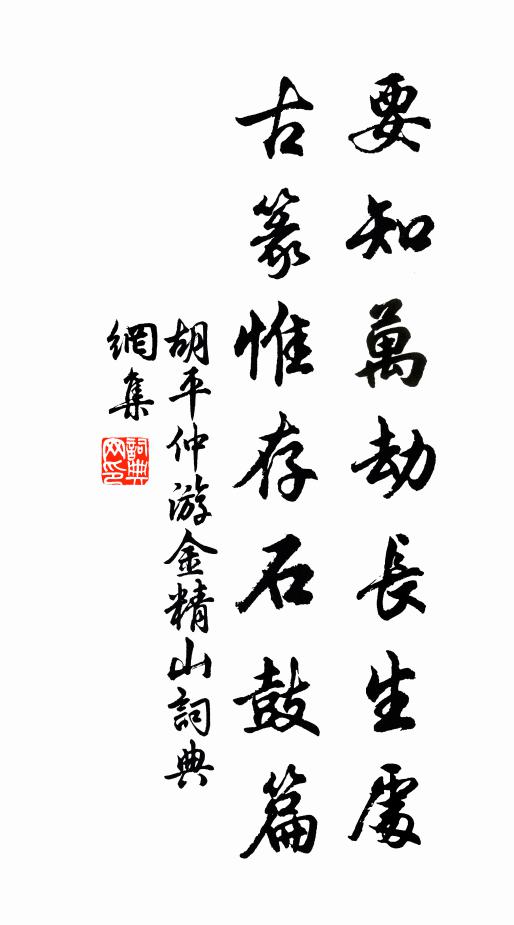 要知萬劫長生處
古篆惟存石鼓篇
胡平仲游金精山詞典
網集
詞典
网印